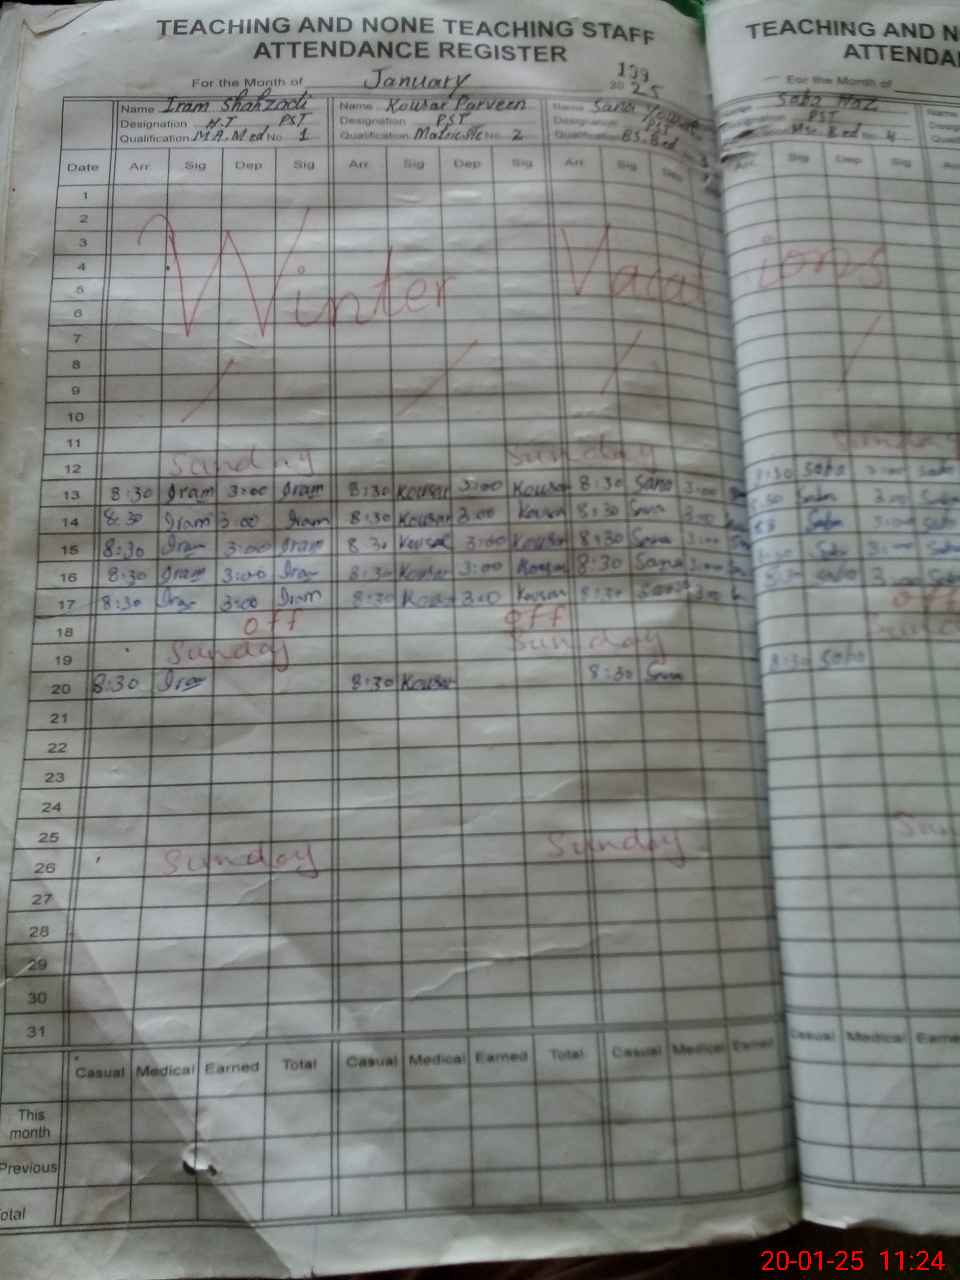 TEACHING AND NONE TEACHING STAFF
ATTENDANCE REGISTER
For the Month of January 2025
139
Name Iram Shahzadi Name Kousar Parveen Name Sana
Designation H.T PST Designation PST Designation PST
Qualification M.A. M.ed No. 1 Qualification Matric No. 2 Qualification BS. B.ed No. 3
Date Arr. Sig Dep Sig Arr. Sig Dep Sig Arr. Sig Dep
1
2
3
4
5
6
7
Winter Vacat
8
9
10
11
12 Sunday Sunday
13 8:30 Iram 3:00 Iram 8:30 Kousar 3:00 Kousar 8:30 Sana 3:00
14 8:30 Iram 3:00 Iram 8:30 Kousar 3:00 Kousar 8:30 Sana 3:00
15 8:30 Iram 3:00 Iram 8:30 Kousar 3:00 Kousar 8:30 Sana 3:00
16 8:30 Iram 3:00 Iram 8:30 Kousar 3:00 Kousar 8:30 Sana 3:00
17 8:30 Iram 3:00 Iram 8:30 Kousar 3:00 Kousar 8:30 Sana 3:00
18 off off
19 Sunday Sunday
20 8:30 Iram 8:30 Kousar 8:30 Sana
21
22
23
24
25
26 Sunday Sunday
27
28
29
30
31
Casual Medical Earned Total Casual Medical Earned Total Casual Medical Earned
This
month
Previous
otal
TEACHING AND N
ATTENDA
For the Month of
Saba Naz Name
PST
MSc. B.ed No. 4
Arr. Sig Dep Sig
ions
Sunday
8:30 Saba 3:00 Saba
8:30 Saba 3:00 Saba
Saba 3:00 Saba
8:30 Saba 3:00 Saba
8:30 Saba 3:00 Saba
off
Sund
8:30 Saba
Sun
Casual Medical Earne
20-01-25 11:24